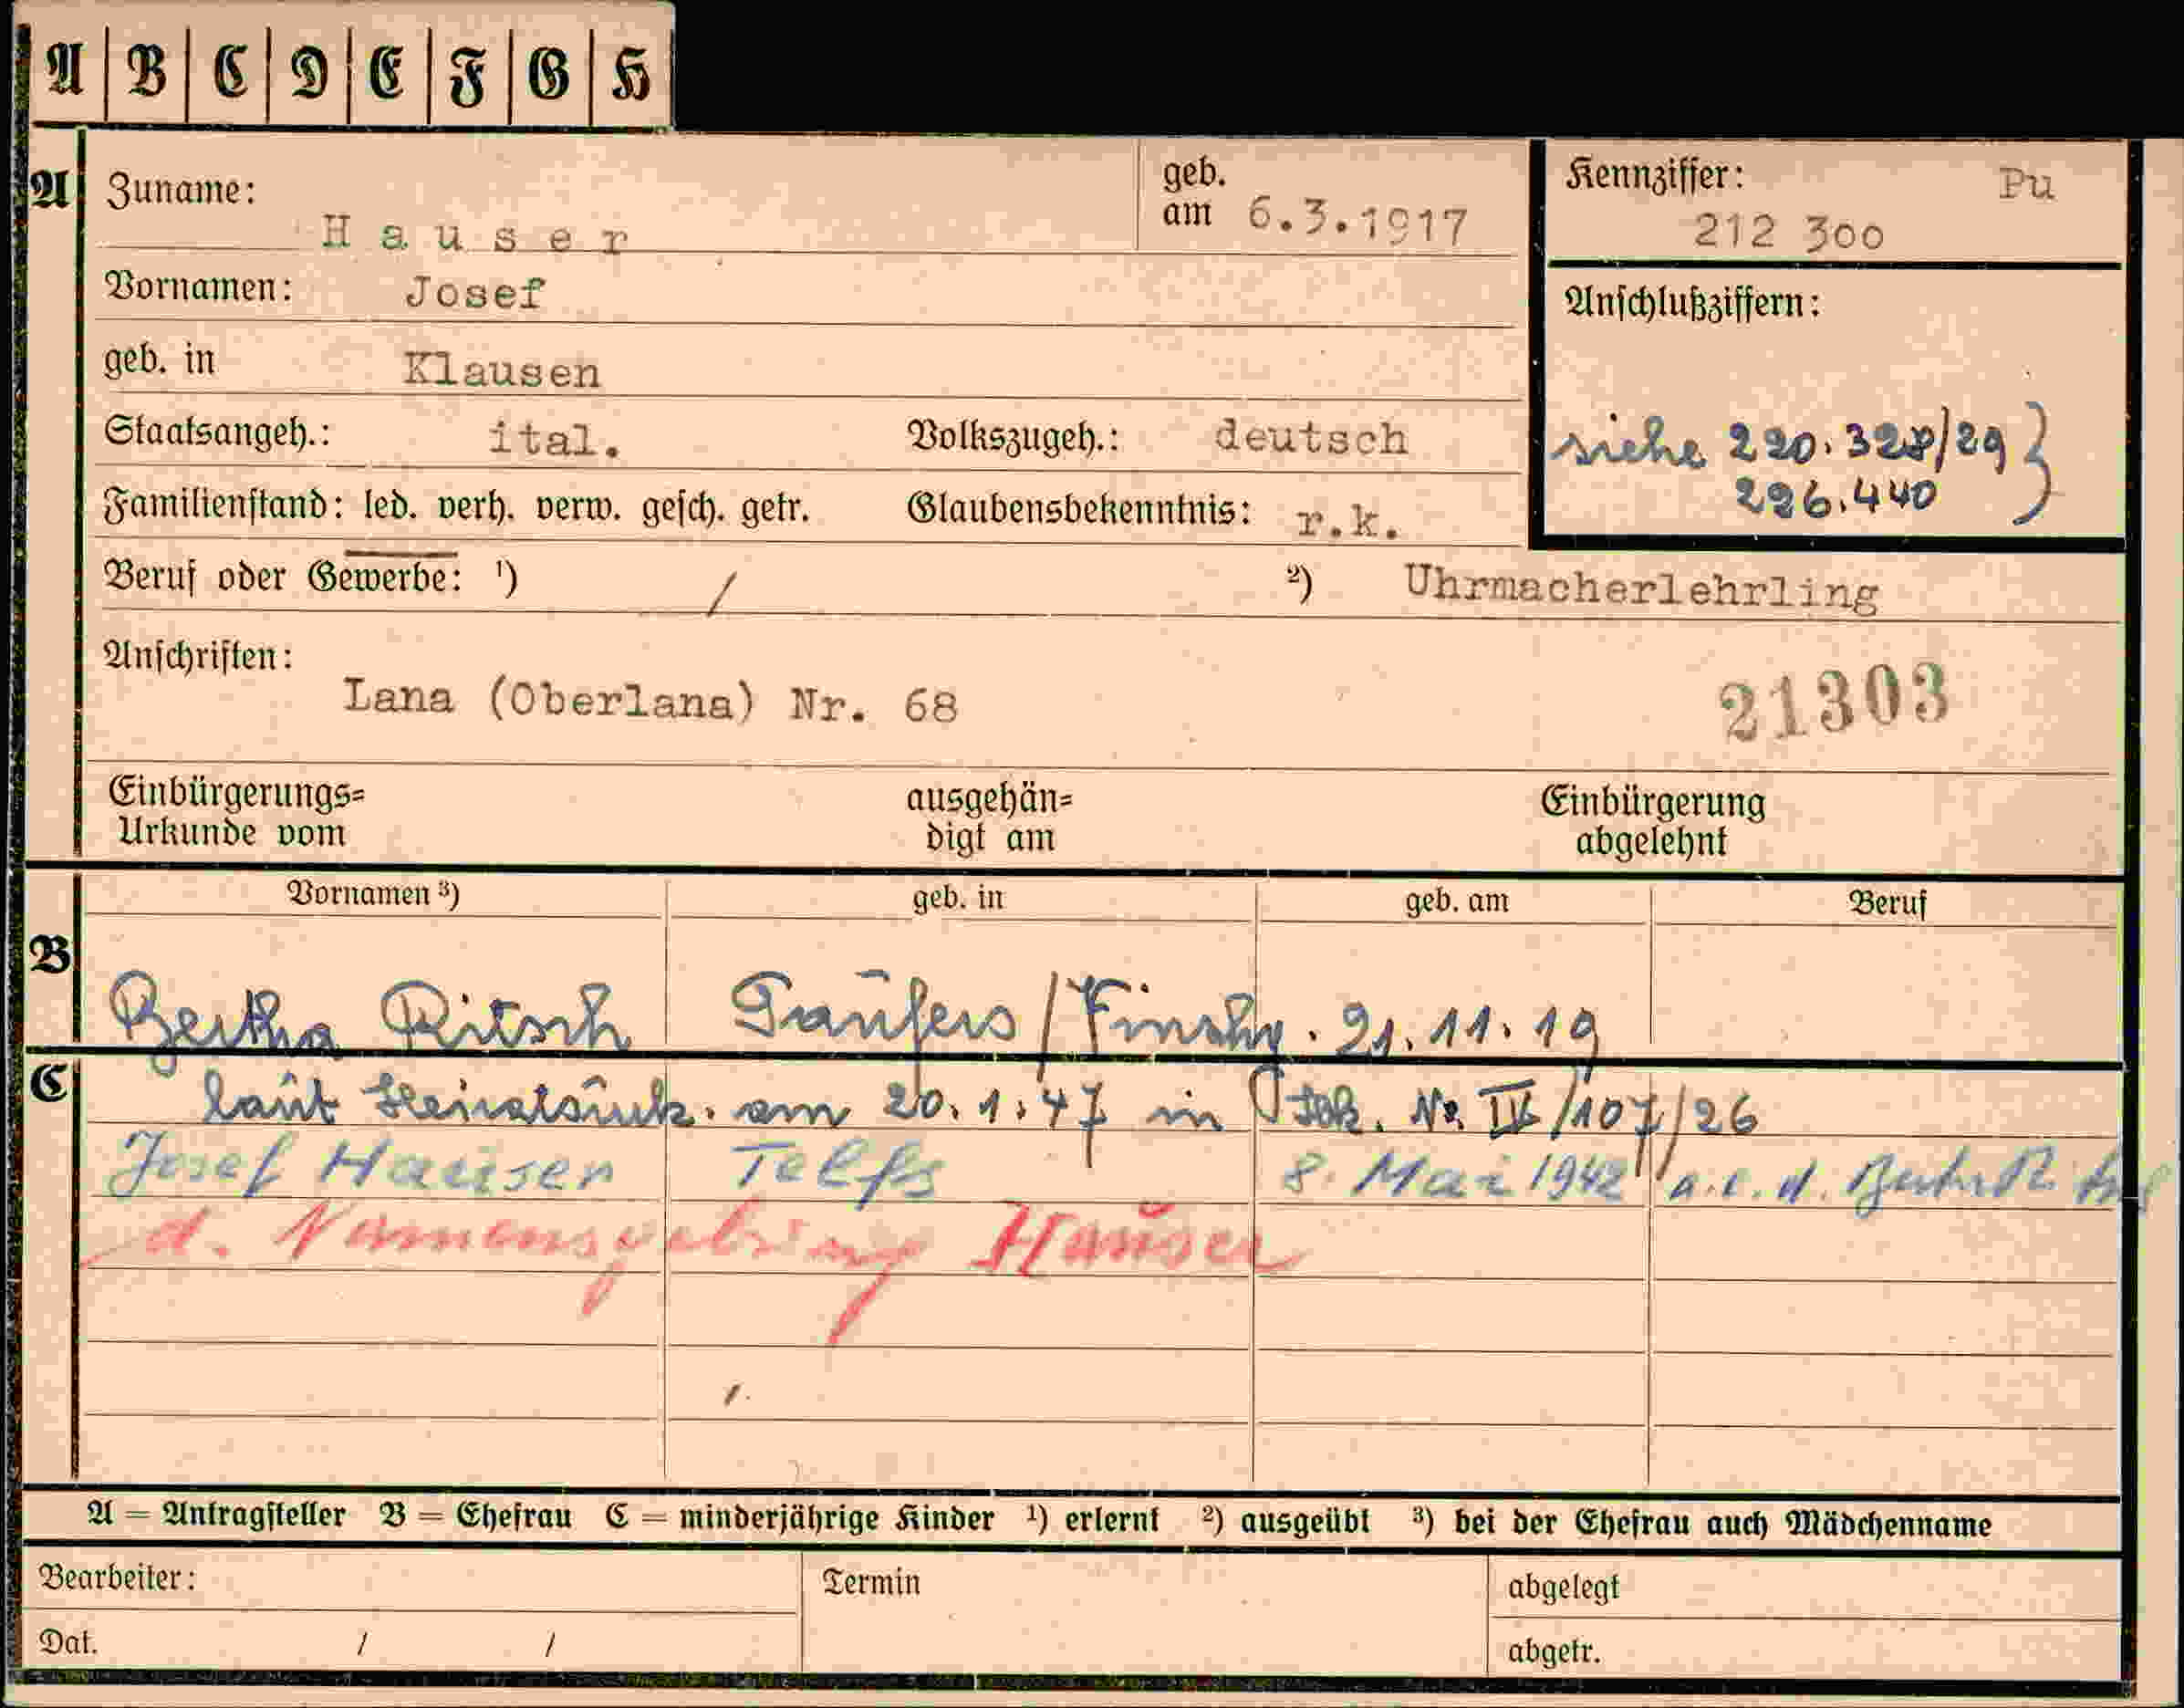 A | B | C | D | E | F | G | H
A Zuname: Hauser geb. am 6.3.1917
Kennziffer: Pu
212 300
Vornamen: Josef
Anschlußziffern:
geb. in Klausen
Staatsangeh.: ital. Volkszugeh.: deutsch
siehe 220.328/29 }
226.440
Familienstand: led. verh. verw. gesch. getr. Glaubensbekenntnis: r.k.
Beruf oder Gewerbe: ¹) / ²) Uhrmacherlehrling
Anschriften:
Lana (Oberlana) Nr. 68
21303
Einbürgerungs= ausgehän= Einbürgerung
Urkunde vom digt am abgelehnt
Vornamen ³) geb. in geb. am Beruf
B
Bertha Ritsch Taufers / 21.11.19
C
laut am 20.1.47 in Nr. IV/107/26
Josef Hauser Telfs 8. Mai 1942 a.e.
d. Namensgebung Hauser
A = Antragsteller B = Ehefrau C = minderjährige Kinder ¹) erlernt ²) ausgeübt ³) bei der Ehefrau auch Mädchenname
Bearbeiter: Termin abgelegt
Dat. / / abgetr.